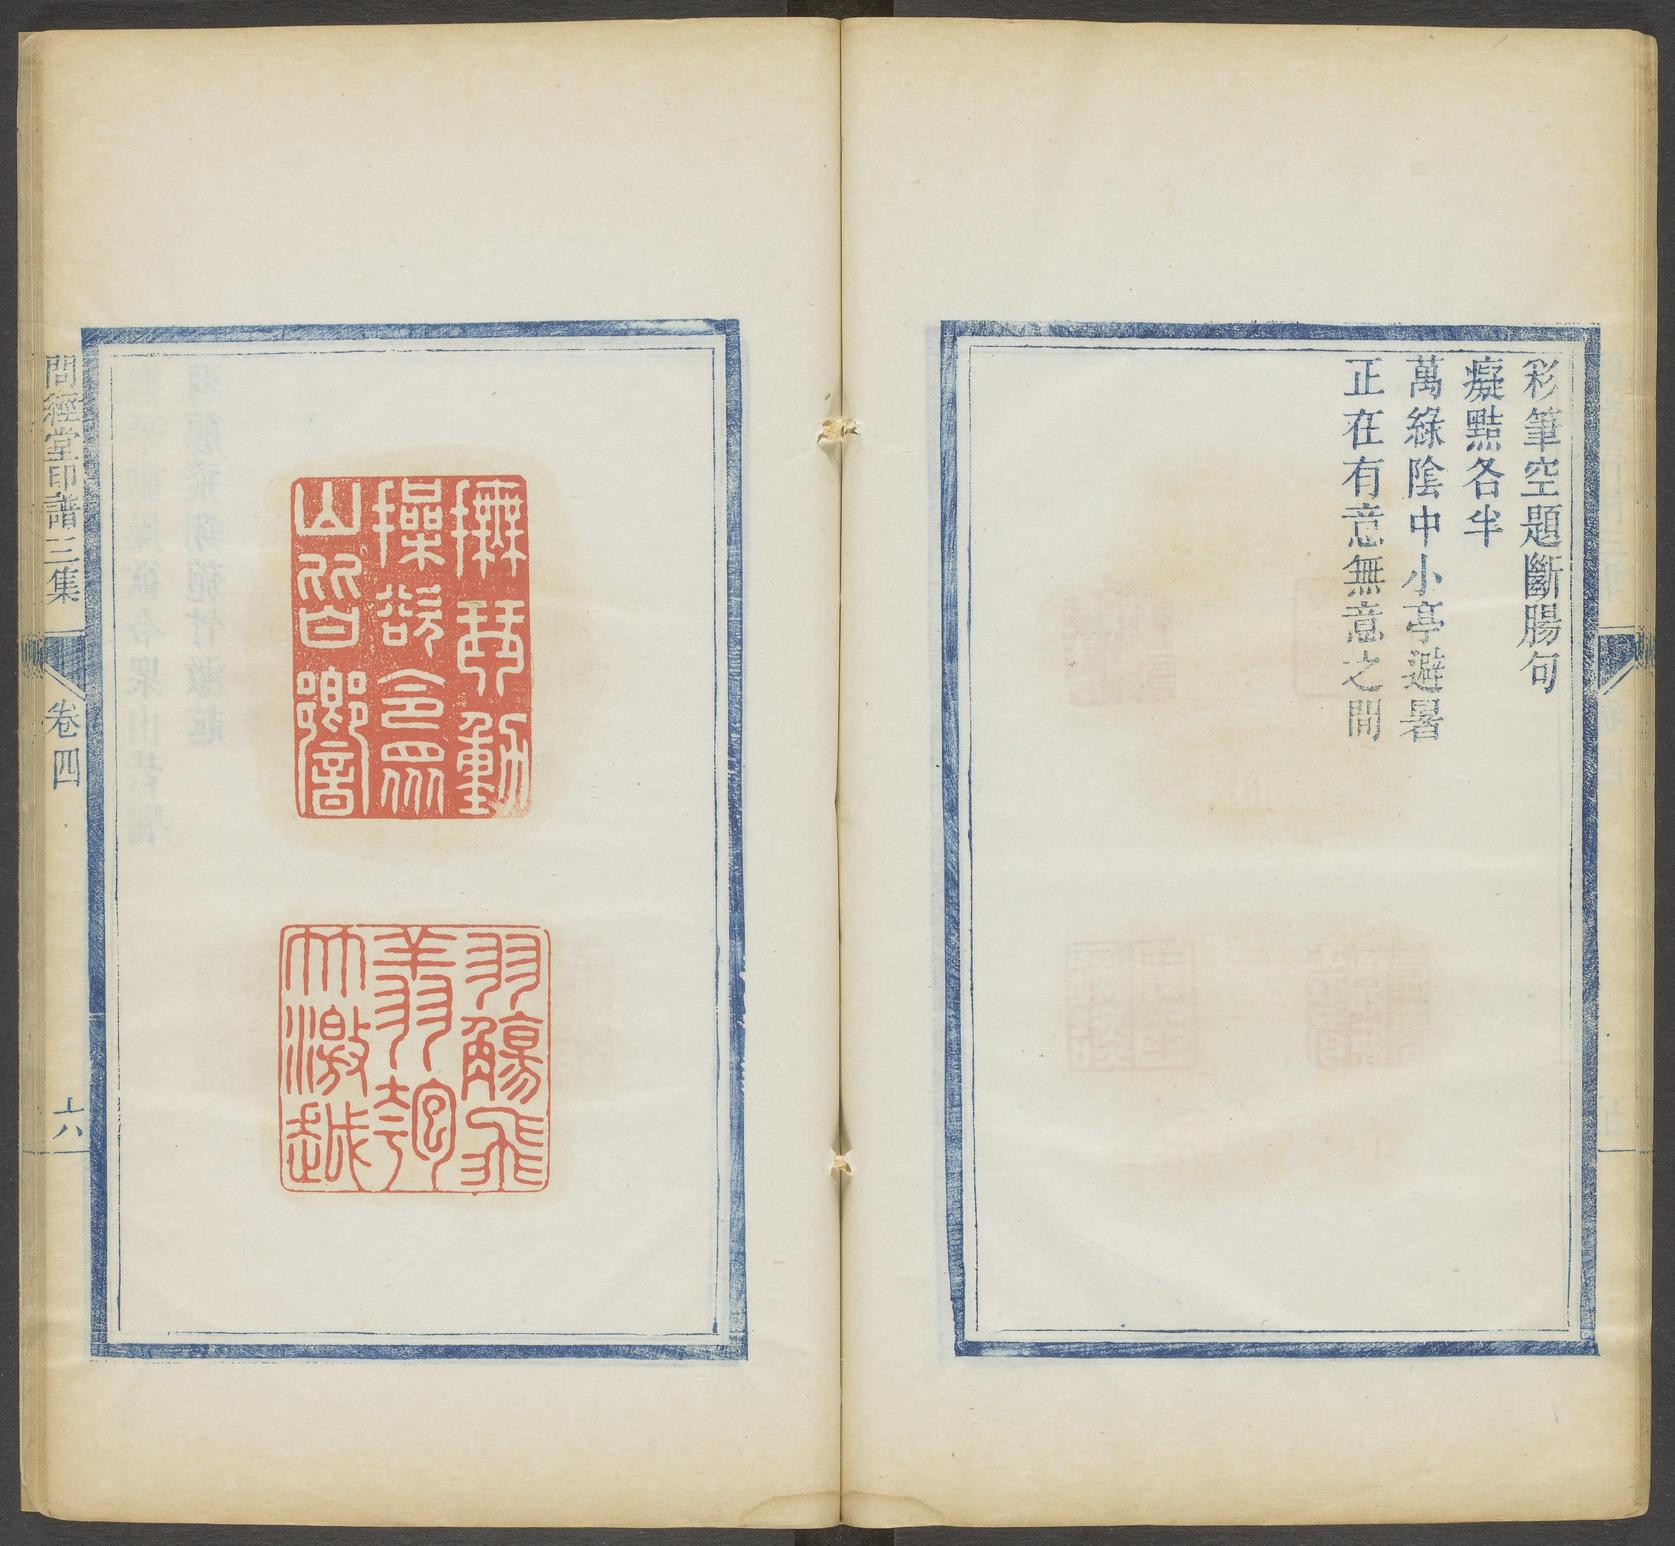 彩筆空題斷腸句
癡黠各半
萬綠陰中小亭避暑
正在有意無意之間
撫琴動
操欲令衆
山皆響
羽觴飛
翔匏
竹激越
問經堂印譜三集
卷四
六